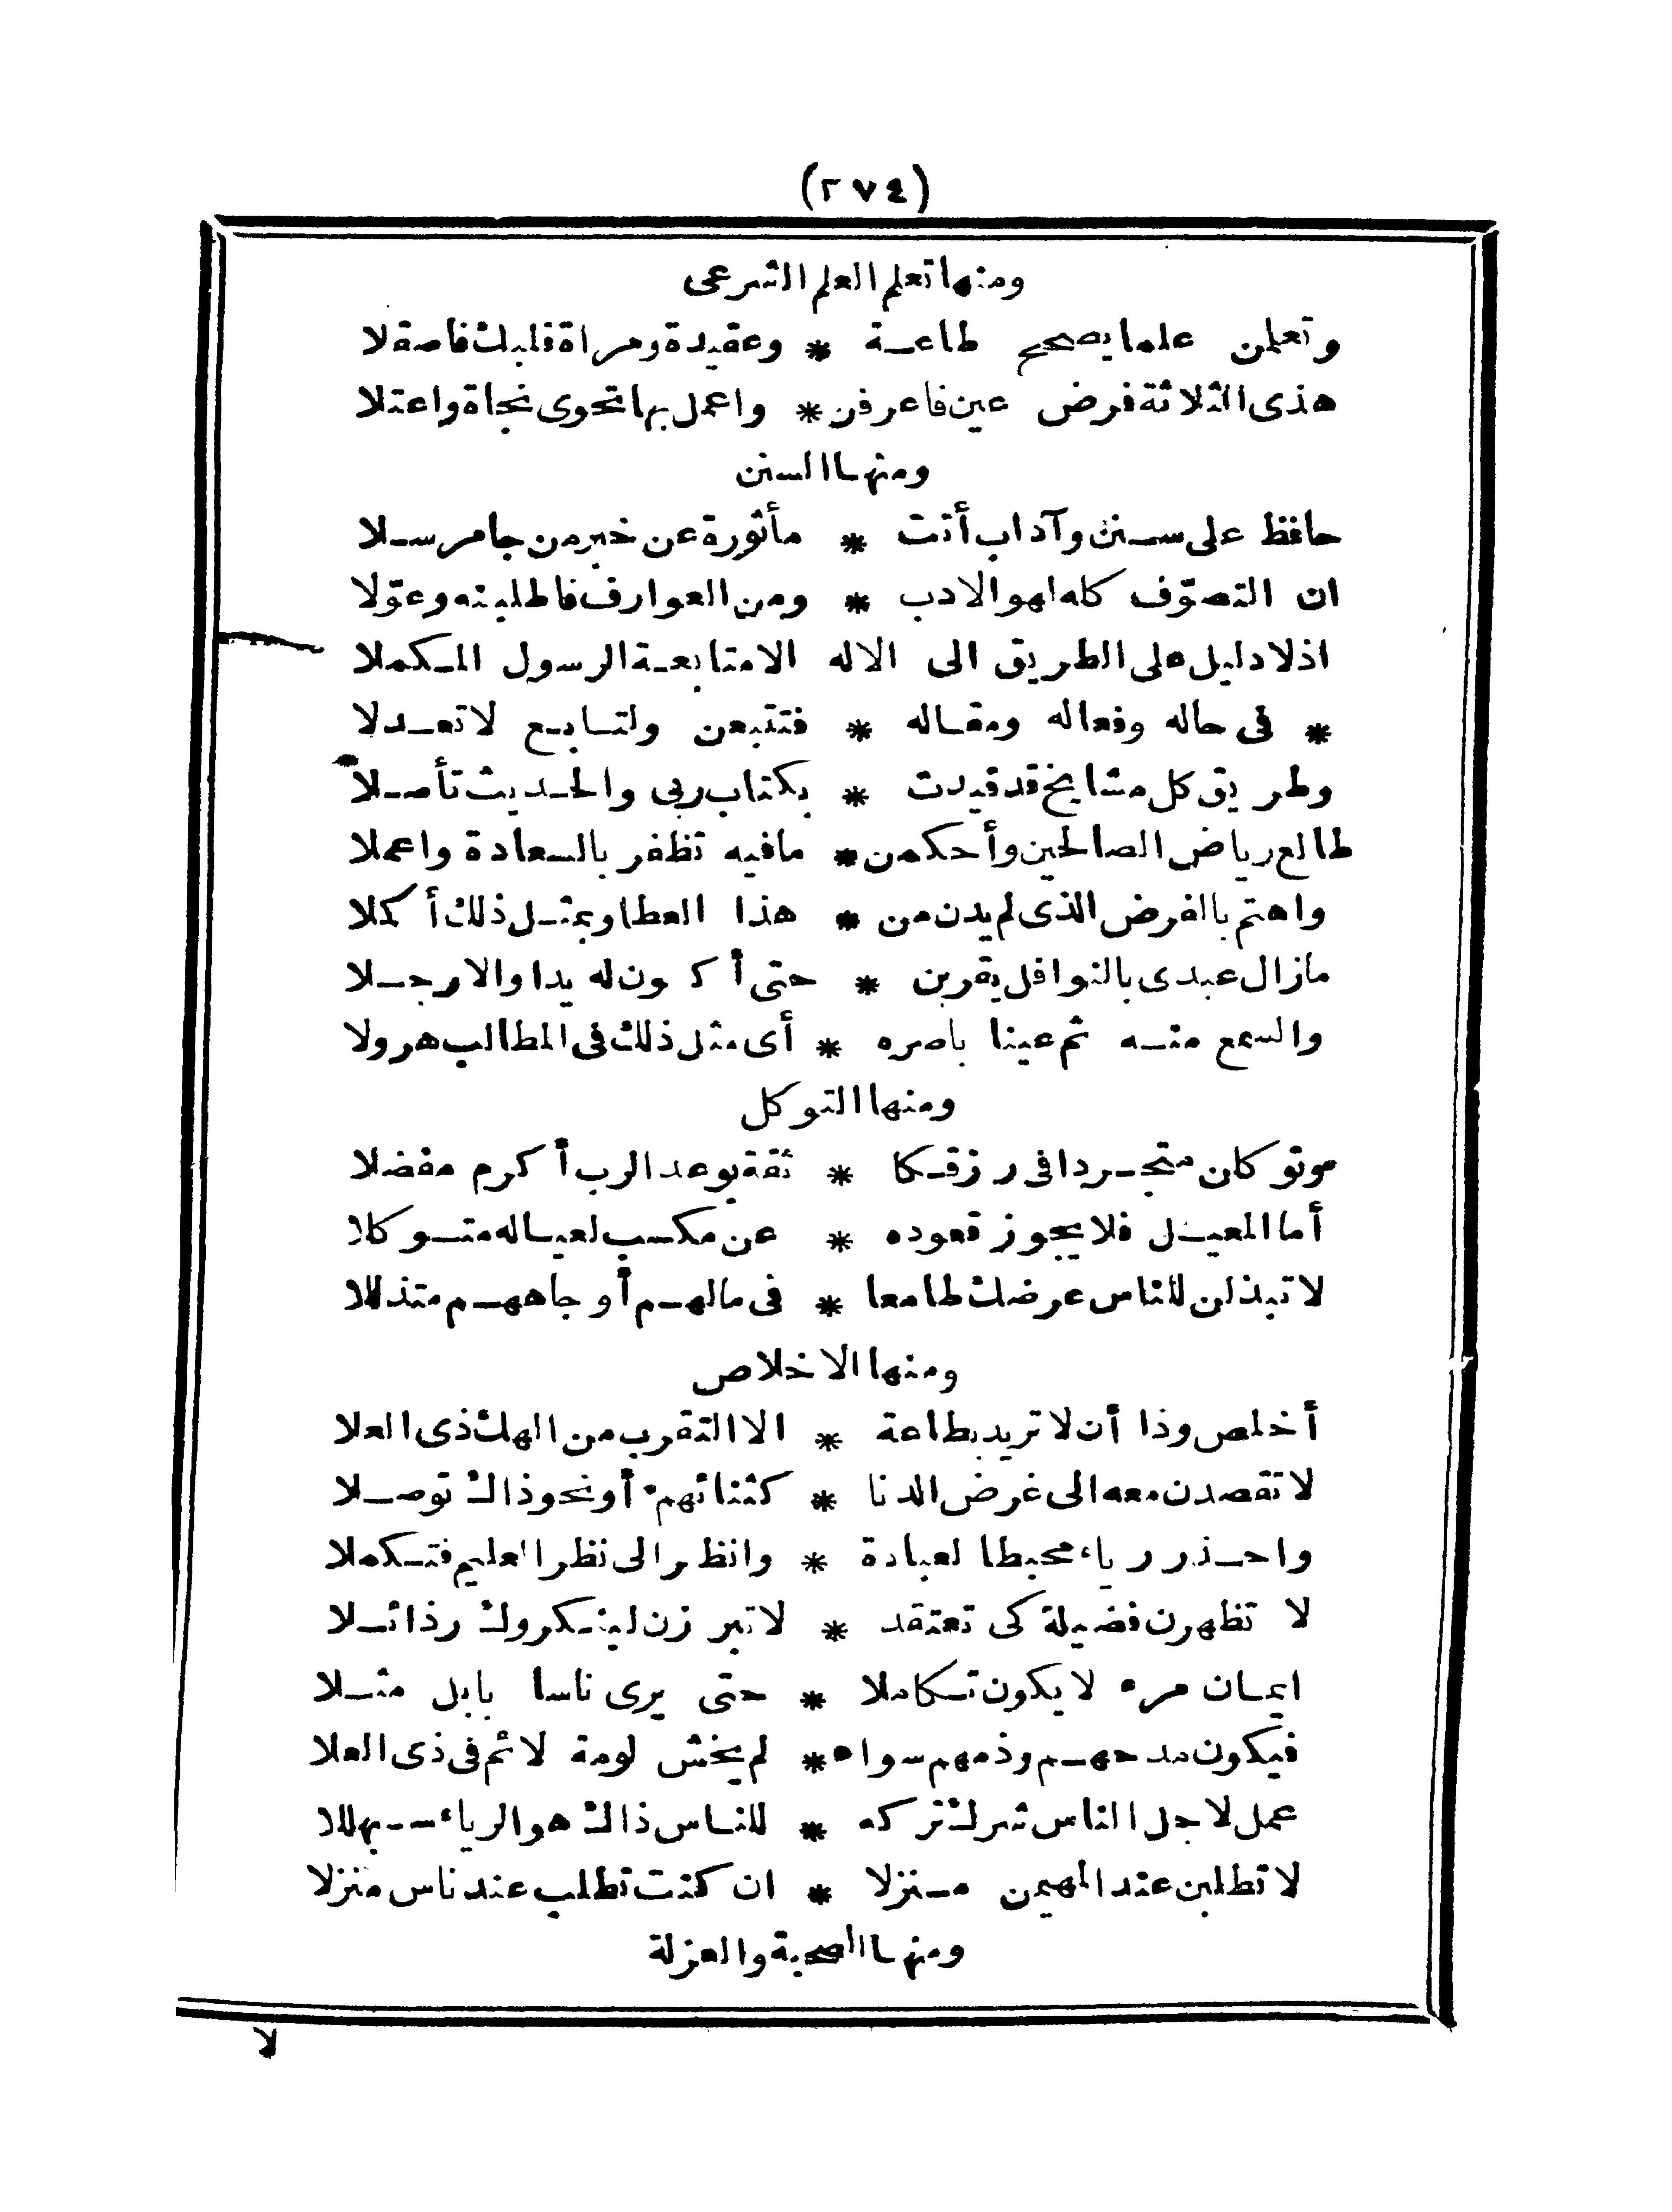 (٢٧٤)
ومنها تعلم العلم الشرعى
وتعلمن علما يصحح طاعة * وعقيدة ومراة قلبك فاصقلا
هذى الثلاثة فرض عين فاعرفن * واعمل بها تحوى نجاة واعتلا
ومنها السنن
حافظ على سنن وآداب أتت * مأثورة عن خير من جا مرسلا
ان التصوّف كله لهو الادب * ومن العوارف فاطلبنه وعوّلا
اذ لا دليل على الطريق الى الاله الا متابعة الرسول المكملا
* فى حاله وفعاله ومقاله * فتتبعن ولتابع لا تعدلا
وطريق كل مشايخ قد قيدت * بكتاب ربى والحديث تأصلا
طالع رياض الصالحين وأحكمن * مافيه تظفر بالسعادة واعملا
واهتم بالفرض الذى لم يدن من * هذا العطا وبمثل ذلك أكملا
مازال عبدى بالنوافل يقربن * حتى أكون له يدا والارجلا
والسمع منه ثم عينا باصره * أى مثل ذلك فى المطالب هرولا
ومنها التوكل
وتوكلن متجردا فى رزقكا * ثقة بوعد الرب أكرم مفضلا
أما المعيل فلا يجوز قعوده * عن مكسب لعياله متوكلا
لا تبذلن للناس عرضك طامعا * فى مالهم أو جاههم متذللا
ومنها الاخلاص
أخلص وذا أن لا تريد بطاعة * الا التقرب من الهك ذى العلا
لا تقصدن معه الى غرض الدنا * كثنائهم أو نحو ذاك توصلا
واحذر رياء محبطا لعبادة * وانظر الى نظر العليم فتكملا
لا تظهرن فضيلة كى تعتقد * لا تبرزن لينكروك رذائلا
ايمان مرء لا يكون تكاملا * حتى يرى ناسا بابل مثلا
فيكون مدحهم وذمهم سواء * لم يخش لومة لائم فى ذى العلا
عمل لاجل الناس شرك تركه * للناس ذاك هو الرياء سبهللا
لا تطلبن عند المهيمن منزلا * ان كنت تطلب عند ناس منزلا
ومنها الصحبة والعزلة
لا